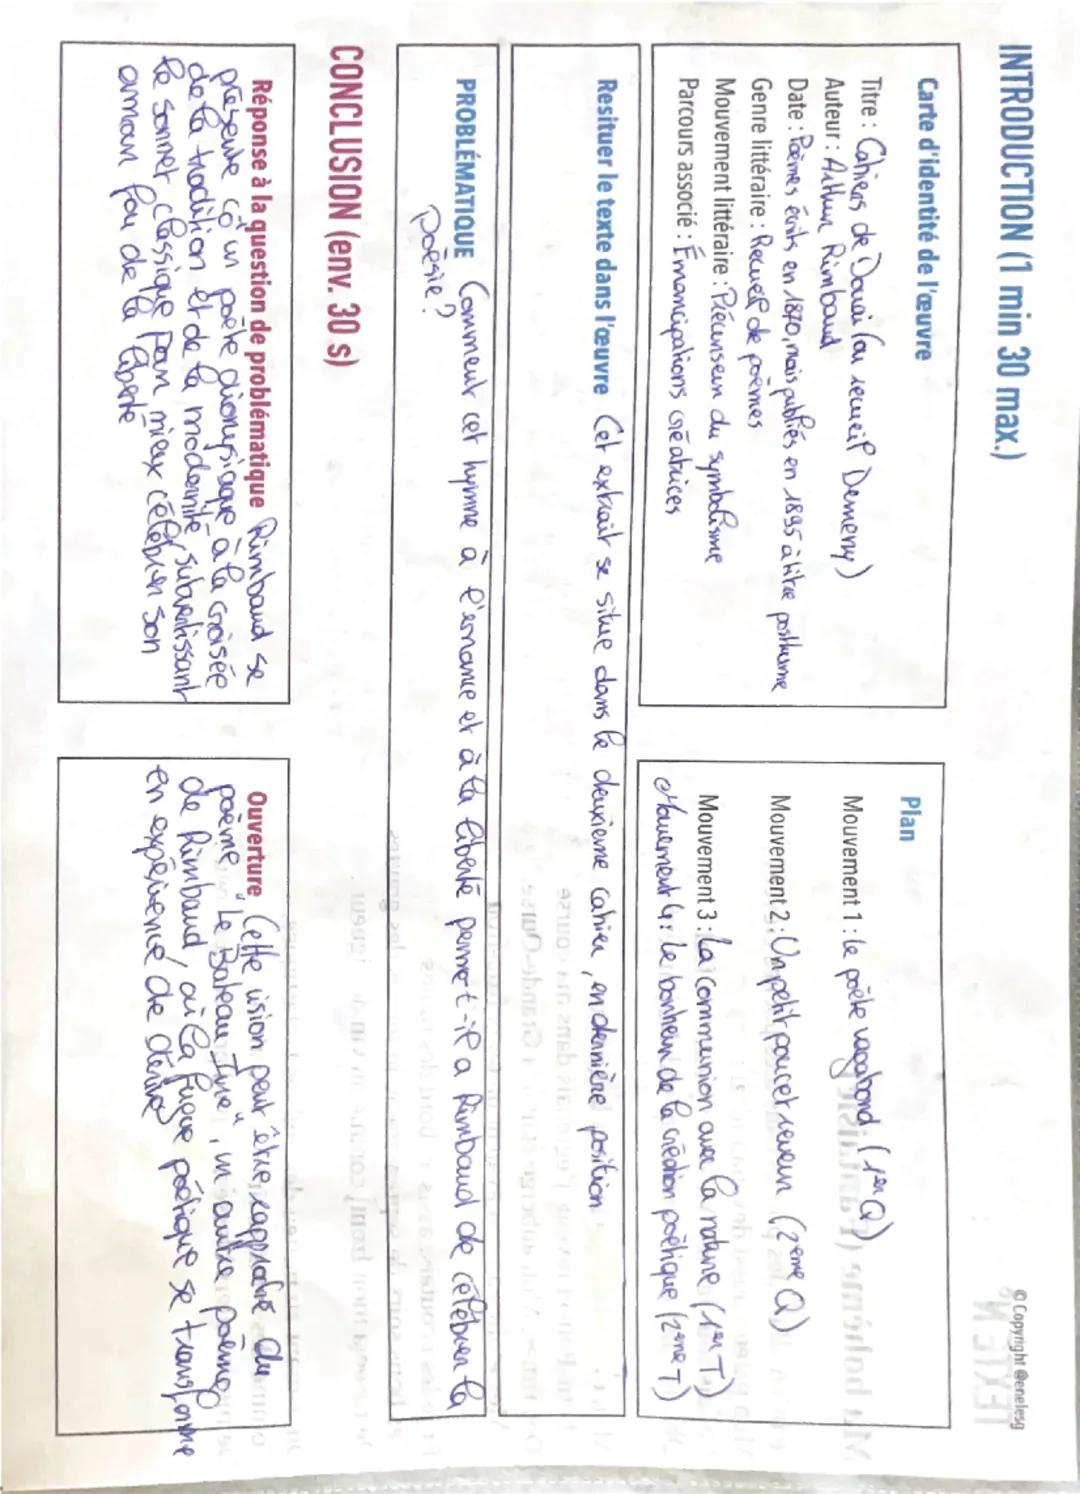 © Copyright @enelesg
INTRODUCTION (1 min 30 max.)
Carte d'identité de l'œuvre
Titre : Cahiers de Douai (ou recueil Demeny)
Auteur : Arthur Rimbaud
Date : Poèmes écrits en 1870, mais publiés en 1895 à titre posthume
Genre littéraire : Recueil de poèmes
Mouvement littéraire : Précurseur du symbolisme
Parcours associé : Émancipations créatrices
Plan
Mouvement 1 : le poète vagabond (1er Q)
Mouvement 2 : Un petit poucet rêveur (2ème Q)
Mouvement 3 : La communion avec la nature (1er T)
Mouvement 4 : le bonheur de la création poètique (2ème T)
Resituer le texte dans l'œuvre Cet extrait se situe dans le deuxième cahier, en dernière position
PROBLÉMATIQUE Comment cet hymne à l'errance et à la liberté permet-il a Rimbaud de célébrer la
poèsie ?
CONCLUSION (env. 30 s)
Réponse à la question de problématique Rimbaud se
présente cô un poète dionysiaque à la croisée
de la tradition et de la modernité, subvertissant
le sonnet classique pour mieux célébrer son
amour fou de la liberté
Ouverture Cette vision peut être rapproché du
poème "Le Bateau Ivre", un autre poème
de Rimbaud, où la fugue poètique se transforme
en expérience de dérive